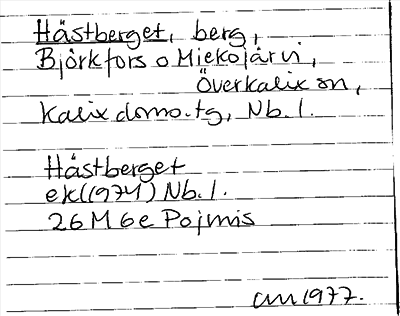 Hästberget, berg,
Björkfors o Miekojärvi,
Överkalix sn,
Kalix domo.tg, Nb.l.
Hästberget
ek (1971) Nb.l.
26 M 6 e Pojmis
1977.